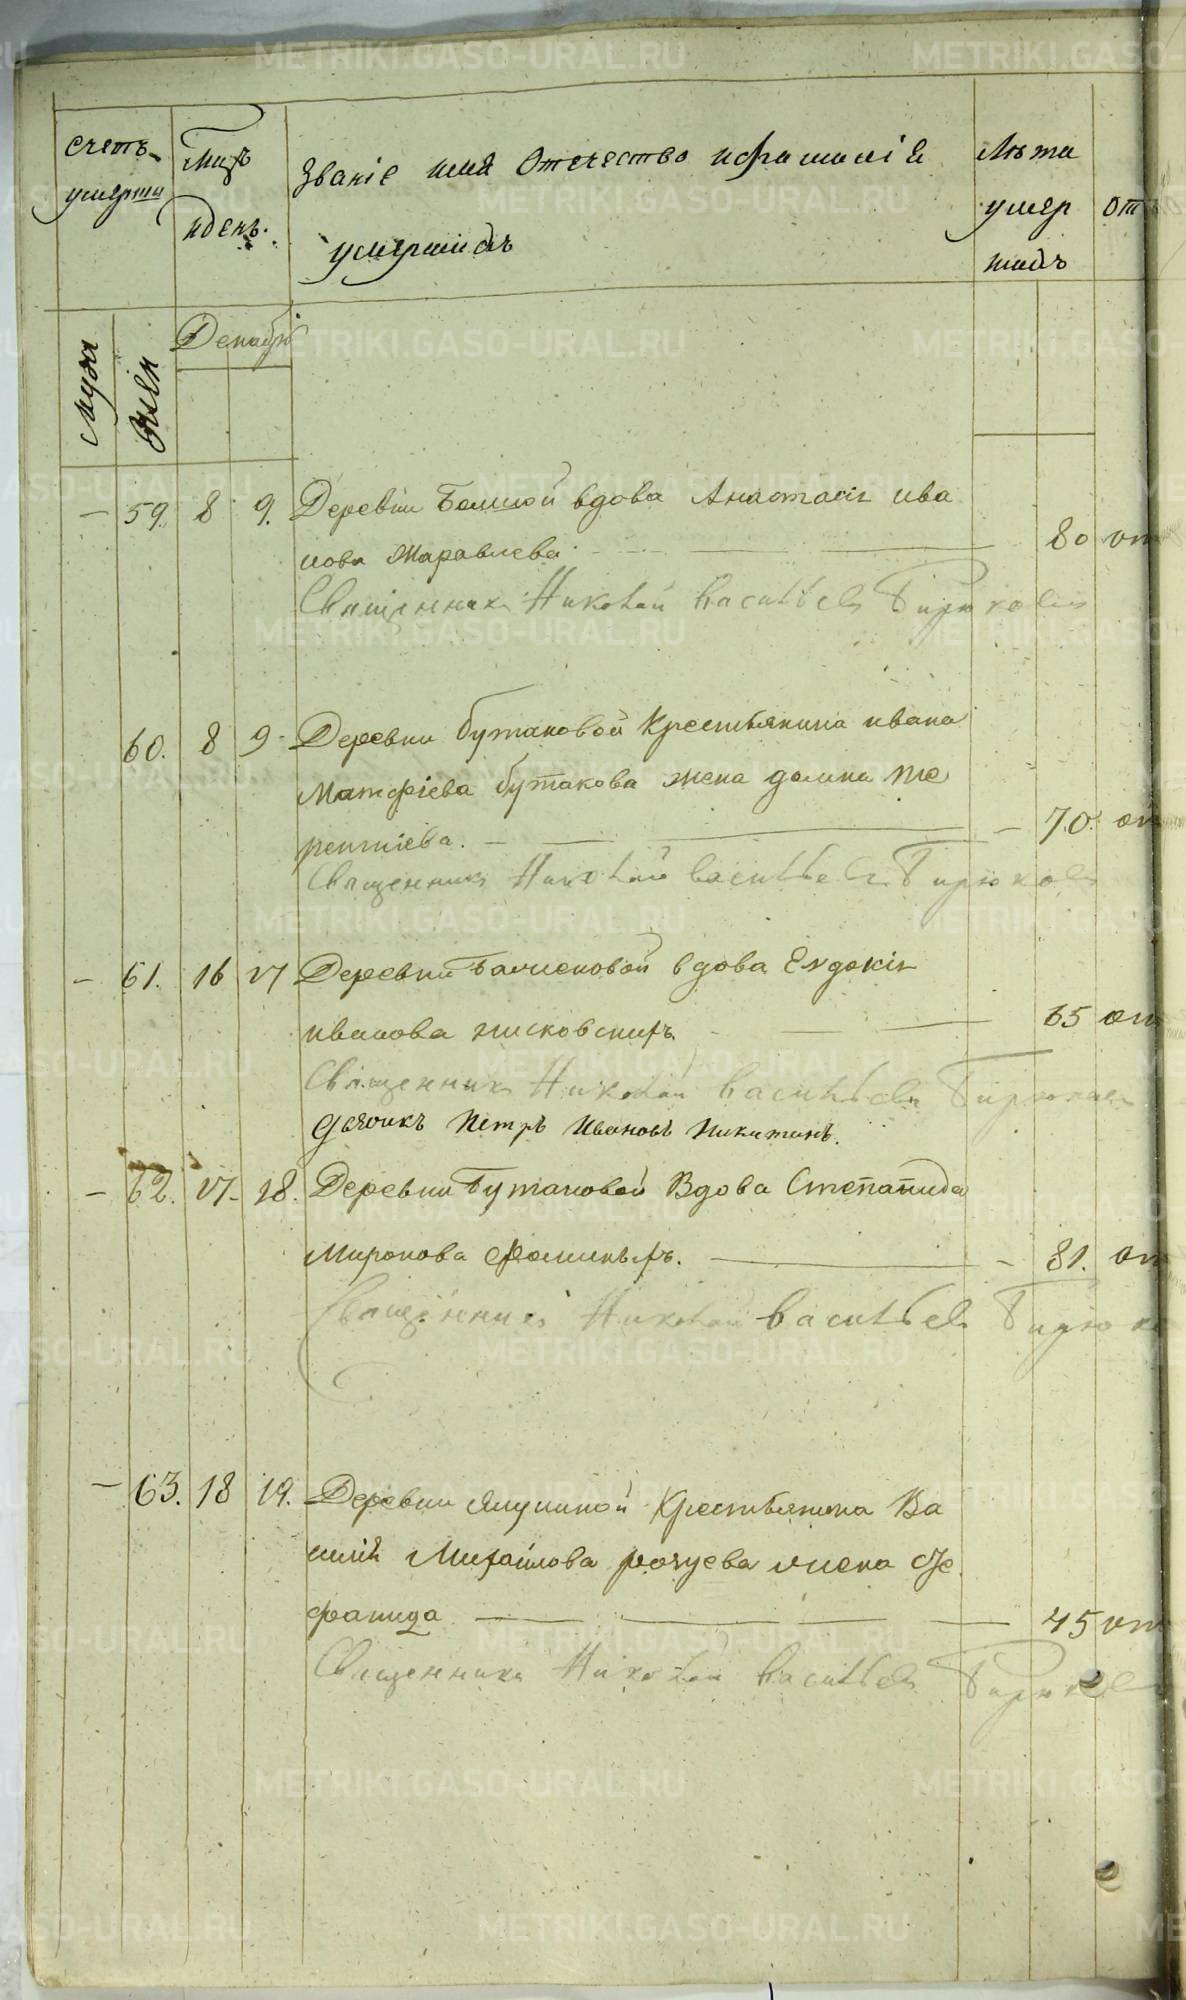 Счетъ умерши
Мцъ и день.
Званіе имя Отечество и фамиліѧ умершихъ
Лѣта умер шихъ
От
Муж
Жен
Декабрь
— 59. 8 9. Деревни вдова Анастасіѧ ива
нова Жаравлева. 80 от
Священникъ Николай Васильевъ Бирюковъ
60. 8 9. Деревни бутаковой Крестьянина ивана
Матфіева бутакова жена домна те
рентіева. — 70. от
Священникъ Николай Васильевъ Бирюковъ
— 61. 16 17 Деревни вдова Евдокіѧ
иванова писковскихъ 65 от
Священникъ Николай Васильевъ Бирюковъ
Дьячикъ Петръ Ивановъ Никитинъ.
— 62. 17. 18. Деревни Бутаковой Вдова Степанида
Миронова фоминыхъ. — 81. от
Священникъ Николай Васильевъ Бирюко
— 63. 18 19. Деревни Ялуниной Крестьянина Ва
силіѧ Михайлова жена Сте
фанида 45 от
Священникъ Николай Васильевъ Бирюковъ
METRIKI.GASO-URAL.RU